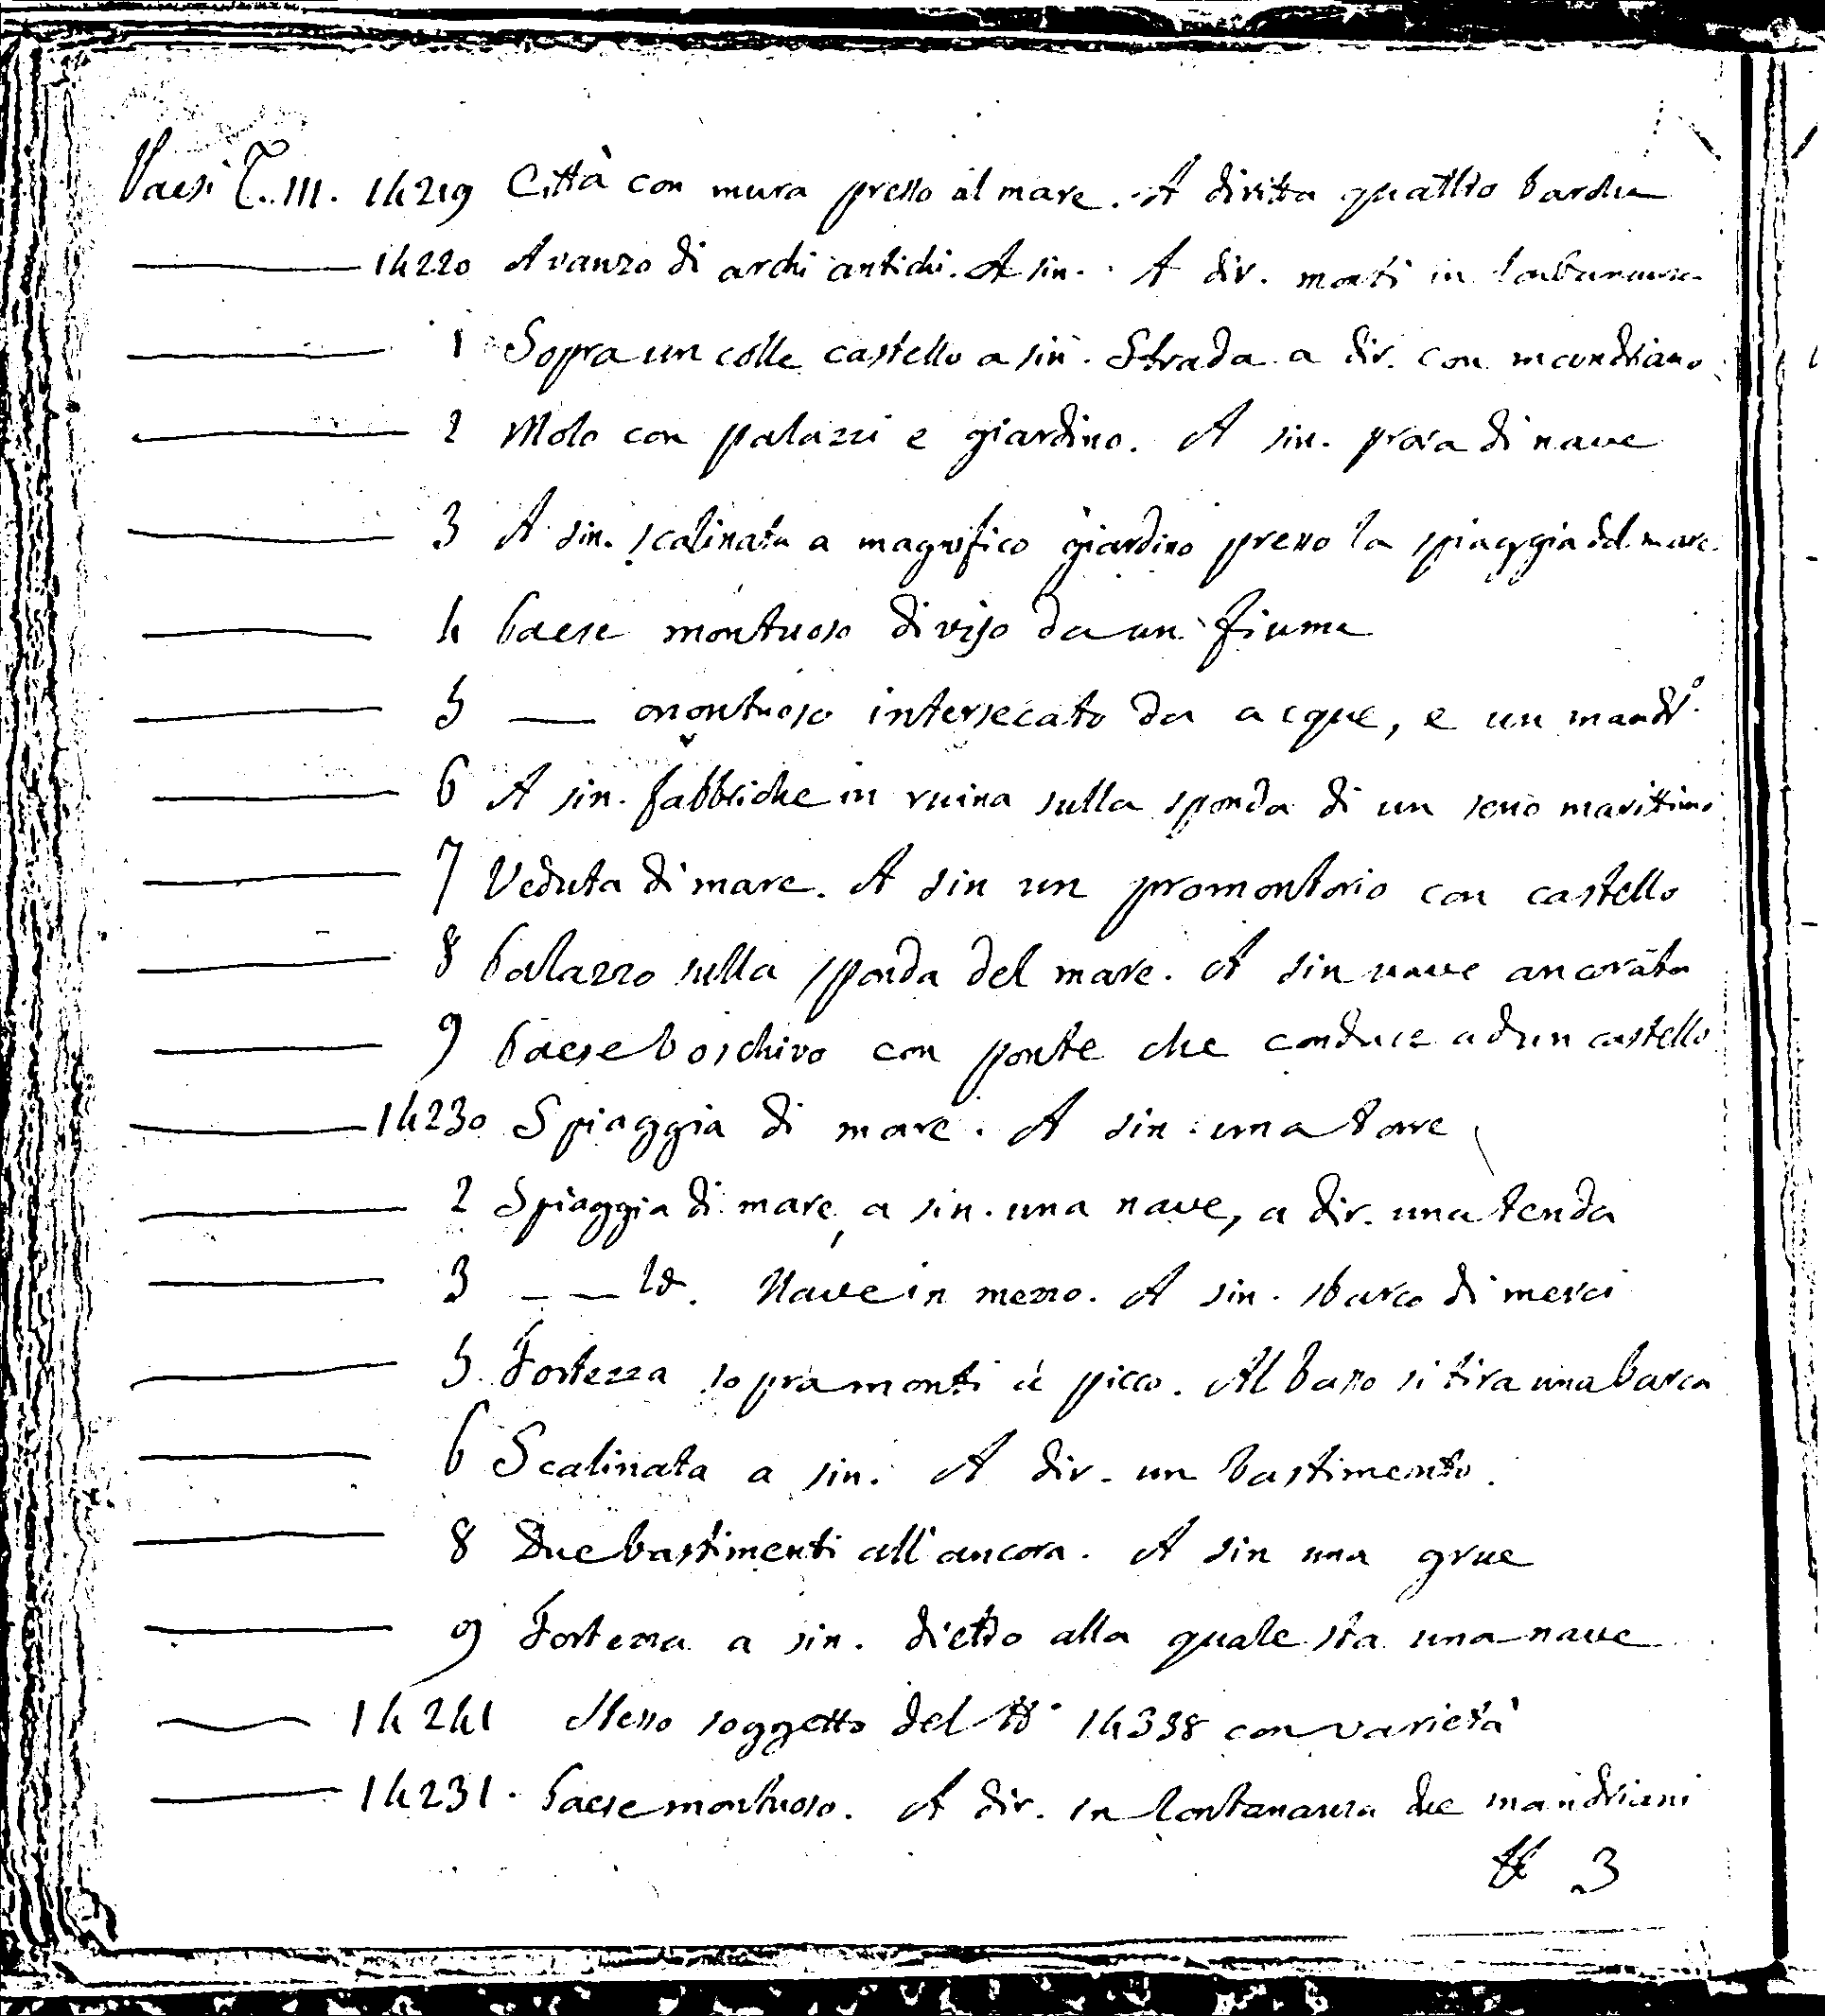 Paesi T. III. 14219 Città con mura presso al mare. A diritta quattro barche
14220 Avanzo di archi antichi. A sin. A dir. monti in lontananza
1 Sopra un colle castello a sin. Strada a dir. con mandriano
2 Molo con palazzi e giardino. A sin. prora di nave
3 A sin. scalinata a magnifico giardino presso la spiaggia del mare.
4 Paese montuoso diviso da un fiume
5 — montuoso intersecato da acque, e un mandr.o
6 A sin. fabbriche in ruina sulla sponda di un seno marittimo
7 Veduta di mare. A sin un promontorio con castello
8 Palazzo sulla sponda del mare. A sin nave ancorata
9 Paese boschivo con ponte che conduce ad un castello
14230 Spiaggia di mare. A sin. una torre
2 Spiaggia di mare, a sin. una nave, a dir. una tenda
3 — — Id. Nave in mezzo. A sin. sbarco di merci
5 Fortezza sopra monti a picco. Al basso si tira una barca
6 Scalinata a sin. A dir. un bastimento.
8 Due bastimenti all'ancora. A sin una grue
9 Fortezza a sin. dietro alla quale sta una nave
14241 Stesso soggetto del N° 14338 con varietà
14231. Paese montuoso. A dir. in lontananza due mandriani
3